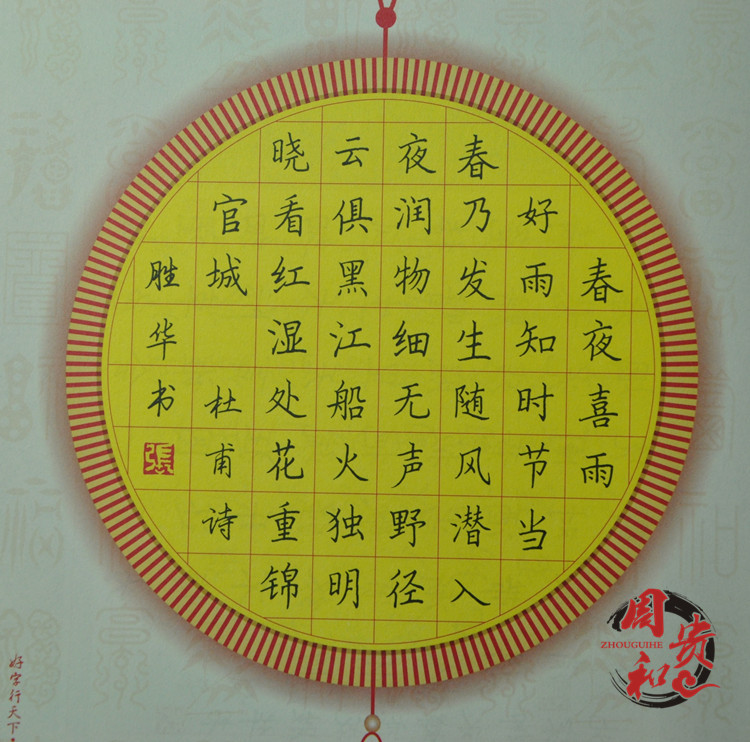 春夜喜雨
好雨知时节当
春乃发生随风潜入
夜润物细无声野径
云俱黑江船火独明
晓看红湿处花重锦
官城 杜甫诗
胜华书
張
好字行天下
周贵和
ZHOUGUIHE